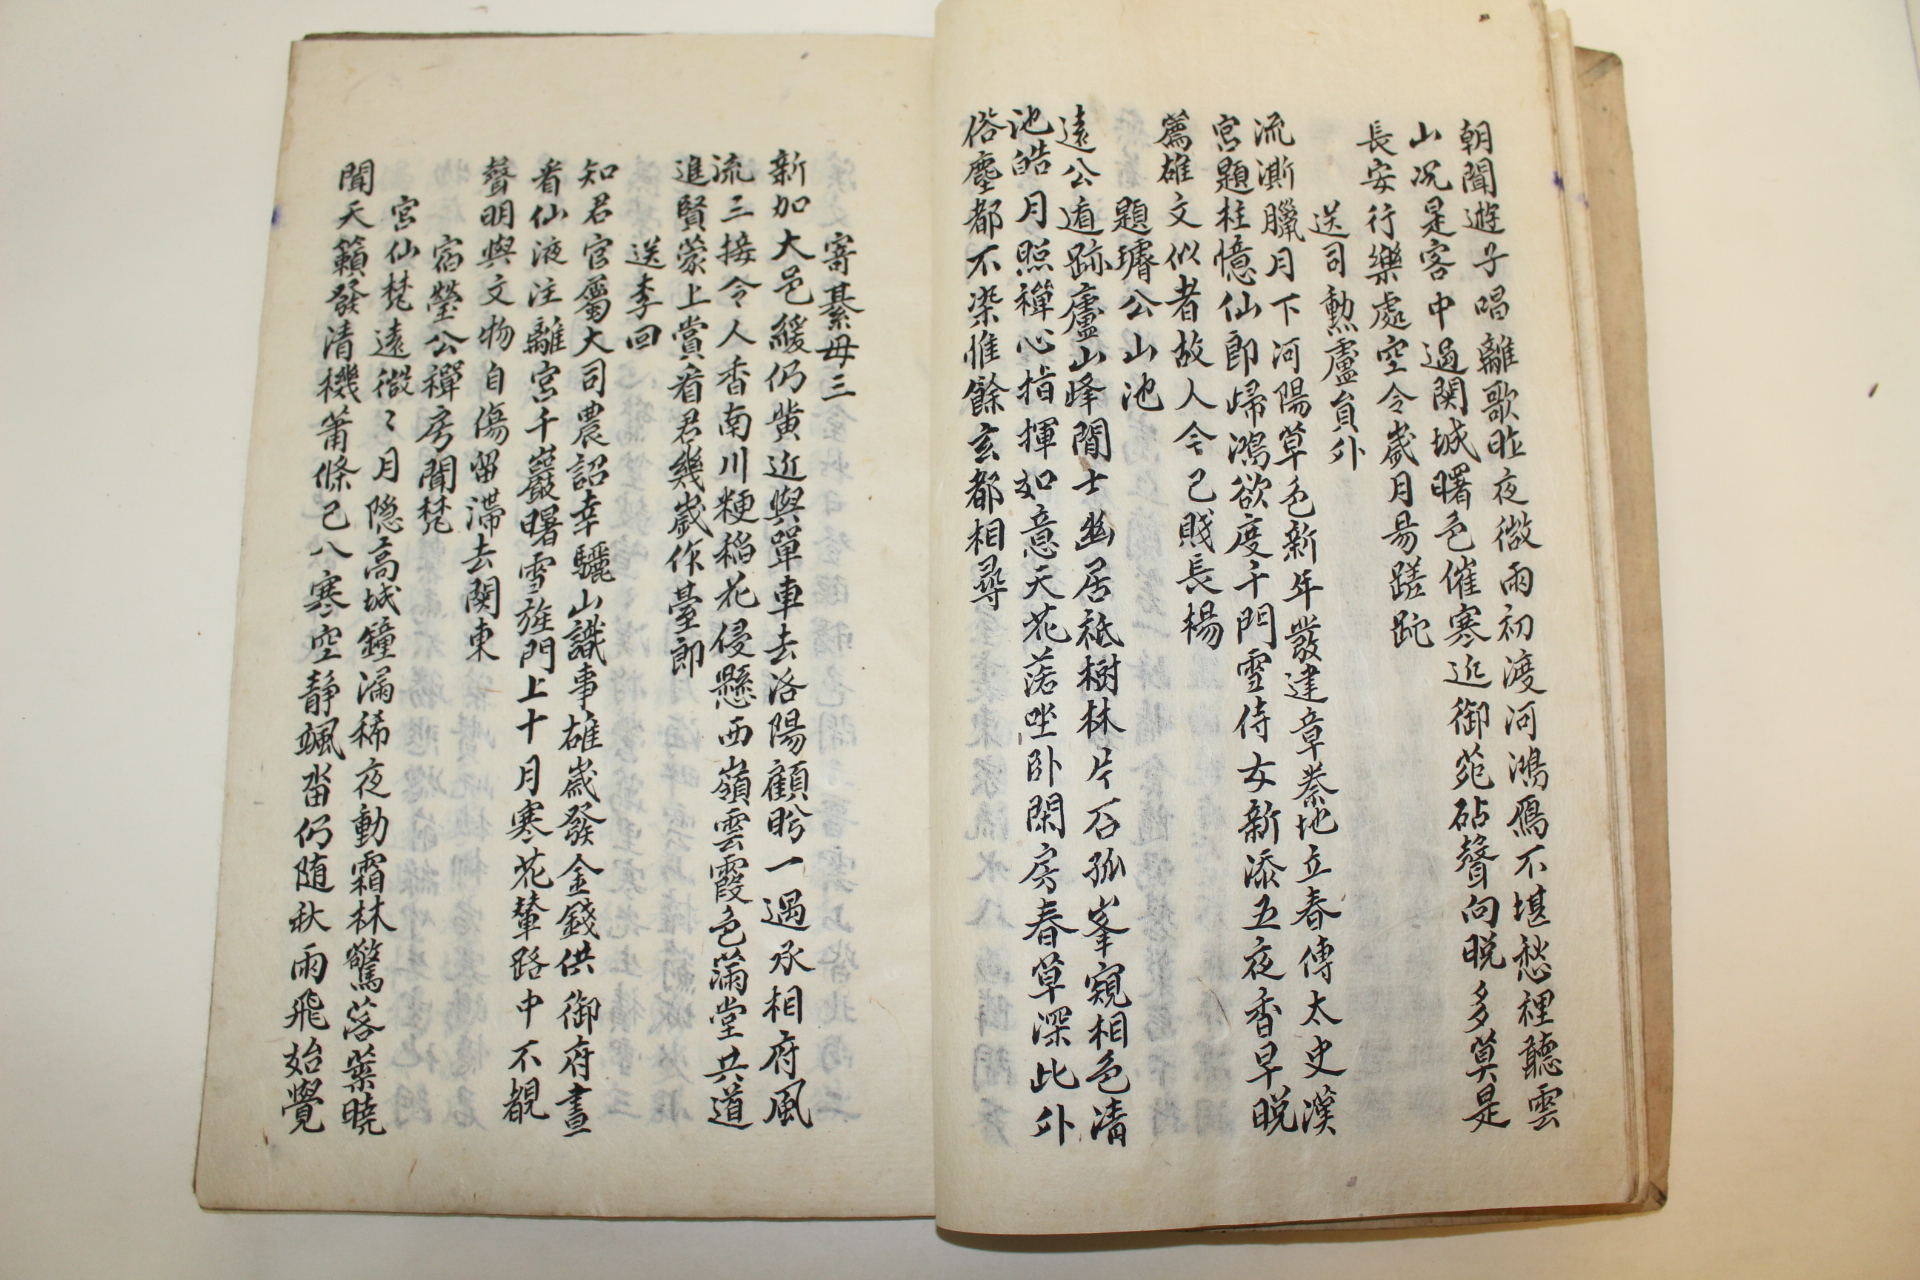 朝聞遊子唱離歌昨夜微雨初渡河鴻鴈不堪愁裡聽雲
山况是客中過関城曙色催寒近御苑砧聲向晩多莫是
長安行樂處空令歲月易蹉跎
送司勲盧員外
流澌臘月下河陽草色新年發建章秦地立春傳太史漢
宮題柱憶仙郎歸鴻欲度千門雪侍女新添五夜香早晩
薦雄文似者故人今已賎長楊
題璿公山池
遠公遁跡廬山岑開士幽居祗樹林片石孤峯窺相色清
池皓月照禪心指揮如意天花落坐卧閑房春草深此外
俗塵都不染惟餘玄都相尋
寄綦毋三
新加大邑綬仍黄近與單車去洛陽顧盻一過承相府風
流三接令人香南川粳稲花侵懸西嶺雲霞色滿堂共道
進賢蒙上賞看君幾歲作臺郎
送李回
知君官屬大司農詔幸驪山識事雄歲發金錢供御府晝
看仙液注離宮千巖曙雪旌門上十月寒花輦路中不覩
聲明與文物自傷留滯去関東
宿瑩公禪房聞梵
宮仙梵遠微〻月隠高城鐘漏稀夜動霜林驚落葉曉
聞天籟發清機蕭條已八寒空靜颯沓仍随秋雨飛始覺